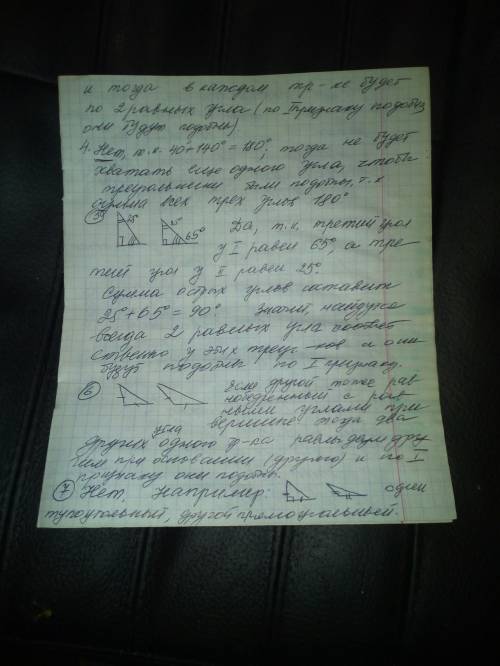 и тогда в каждом тр-ке будет
по 2 равных угла (по I признаку подобия
они будут подобны)
4. Нет, т.к. 40+140°=180°, тогда не будет
хватать еще одного угла, чтобы
треугольники были подобны, т.к
сумма всех трех углов 180°
5 25° 65° Да, т.к. третий угол
у I равен 65°, а тре-
тий угол у II равен 25°.
Сумма острых углов составит
25°+65°=90° Значит, найдутся
всегда 2 равных угла соответ
ственно у этих треуг-ков и они
будут подобны по I признаку.
6 Если другой тоже рав
нобедренный с рав
ными углами при
вершине тогда два
угла
других одного тр-ка равны двум дру
гим при основании (другого) и по I
признаку они подобны.
7 Нет. Например: один
тупоугольный, другой прямоугольный.